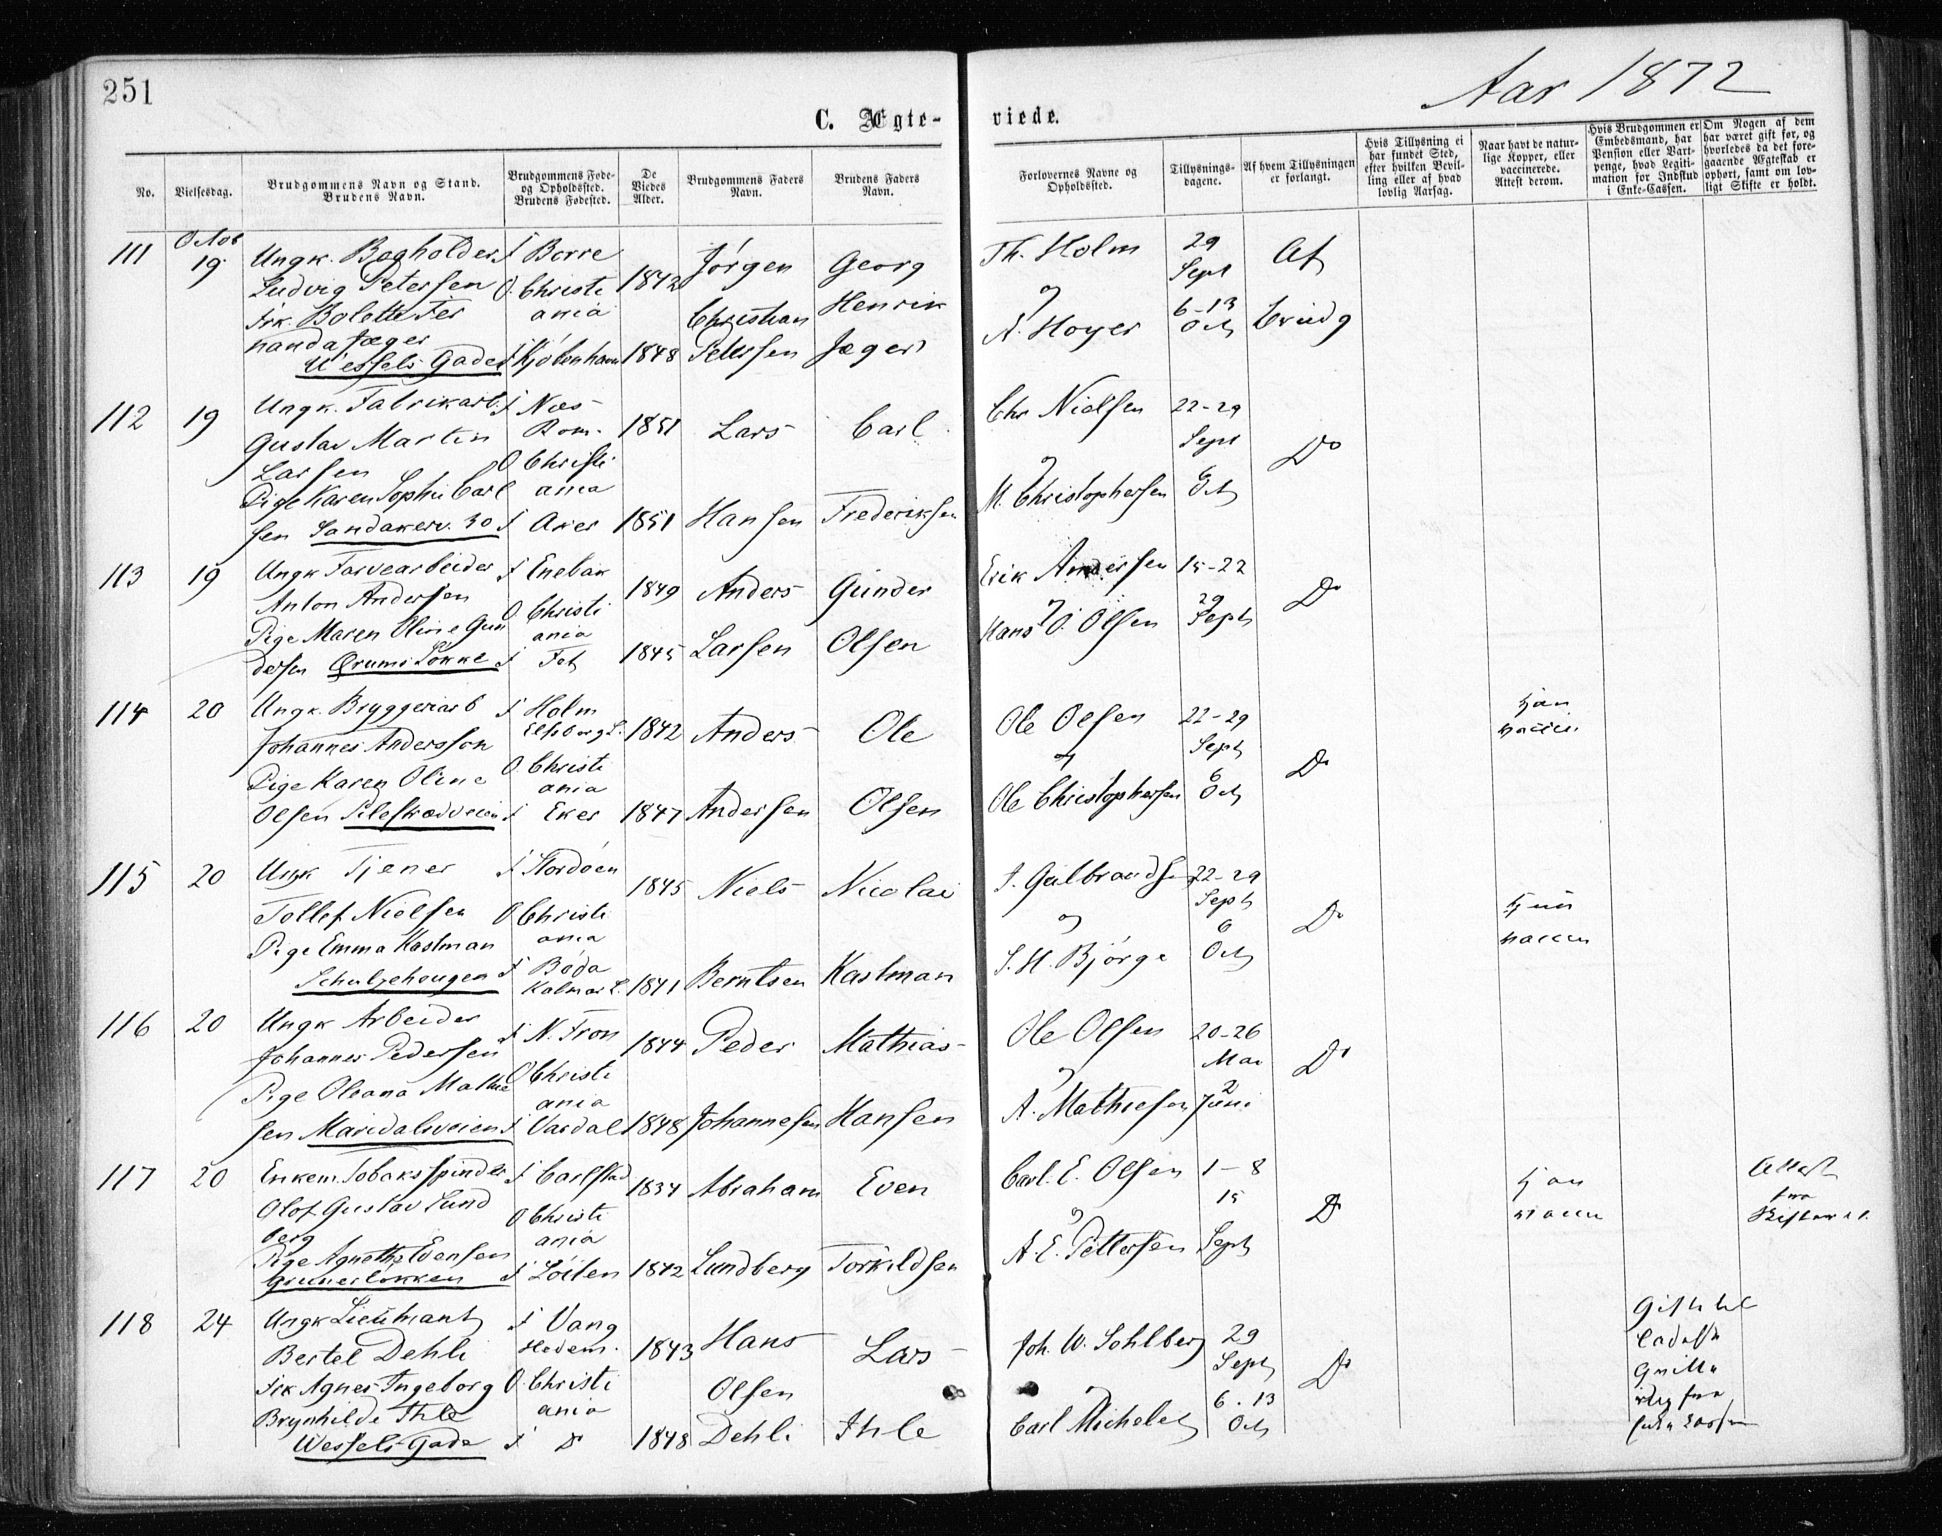 251
Aar 1872
C. Ægte-
viede.
No.
Vielsesdag.
Brudgommens Navn og Stand.
Brudens Navn.
Brudgommens Føde-
og Opholdssted.
Brudens Fødested.
De
Viedes
Alder.
Brudgommens Faders
Navn.
Brudens Faders
Navn.
Forlovernes Navne og
Opholdssted.
Tillysnings-
dagene.
Af hvem Tillysningen
er forlangt.
Hvis Tillysning ei
har fundet Sted,
efter hvilken Bevil-
ling eller af hvad
lovlig Aarsag.
Naar havt de natur-
lige Kopper, eller
vaccinerede.
Attest derom.
Hvis Brudgommen er
Embedsmand, har
Pension eller Vart-
penge, hvad Legiti-
mation for Indskud
i Enke-Cassen.
Om Nogen af dem
har været gift før, og
hvorledes da det fore-
gaaende Ægteskab er
ophørt, samt om lov-
ligt Skifte er holdt.
111
Octob
19
Ungk. Bogholder
Ludvig Petersen
Frk. Bolette Fer
nanda Jæger
Wessels Gade
f Borre
O. Christi
ania
f Kjøbenhavn
1842
1848
Jørgen
Christian
Petersen
Georg
Henrik
Jæger
Th. Holm
og
A. Hoyer
29
Sept
6-13
Oct
Af
Brudg
112
19
Ungk. Fabrikarb.
Gustav Martin
Larsen
Pige Karen Sophie Carl
sen Sandakerv. 30
f Næs
Rom.
O Christi
ania
f Aker
1851
1851
Lars
Hansen
Carl
Frederiksen
Chr Nielsen
og
M. Christophersen
22-29
Sept
6
Oct
Do
113
19
Ungk Farvearbeider
Anton Andersen
Pige Maren Oline Gun
dersen Ørums Løkke
f Enebak
O Christi
ania
f Fet
1849
1845
Anders
Larsen
Gunder
Olsen
Erik Andersen
og
Hans O. Olsen
15-22
29
Sept
Do
114
20
Ungk. Bryggeriarb
Johannes Andersson
Pige Karen Oline
Olsen Pileskrædveien
f Holm
Elfsborg L.
O Christi
ania
f Eker
1842
1847
Anders
Andersen
Ole
Olsen
Ole Olsen
og
Ole Christophersen
22-29
Sept
6
Oct
Do
115
20
Ungk Tjener
Tollef Nielsen
Pige Emma Kastman
Schultzehougen
f Stordøen
O Christi
ania
f Böda
Kalmar L.
1845
1841
Niels
Berntsen
Nicolai
Kastman
J. Gulbrandsen
og
S. H. Bjørge
22-29
Sept
6
Oct
Do
116
20
Ungk Arbeider
Johannes Pedersen
Pige Oleana Mathie
sen Maridalsveien
f N. Fron
O Christi
ania
f Vardal
1844
1848
Peder
Johannesen
Mathias
Hansen
Ole Olsen
og
A. Mathiesen
20-26
Mai
2
Juni
Do
117
20
Enkem. Tobaksspinder
Olof Gustav Lund
berg
Pige Agnethe Evensen
Grünerløkken
f Carlstad
O Christi
ania
f Löiten
1834
1842
Abraham
Lundberg
Even
Torkildsen
Carl. E. Olsen
og
A. E. Pettersen
1-8
15
Sept
Do
Attest
fra
118
24
Ungk Lieutnant
Bertel Dehli
Frk Agnes Ingeborg
Brynhilde Ihle
Wessels Gade
f Vang
Hedem.
O. Christi
ania
f Do
1843
1848
Hans
Olsen
Dehli
Lars
Ihle
Joh. W. Sohlberg
og
Carl Michelet
29
Sept
6. 13
Oct
Do